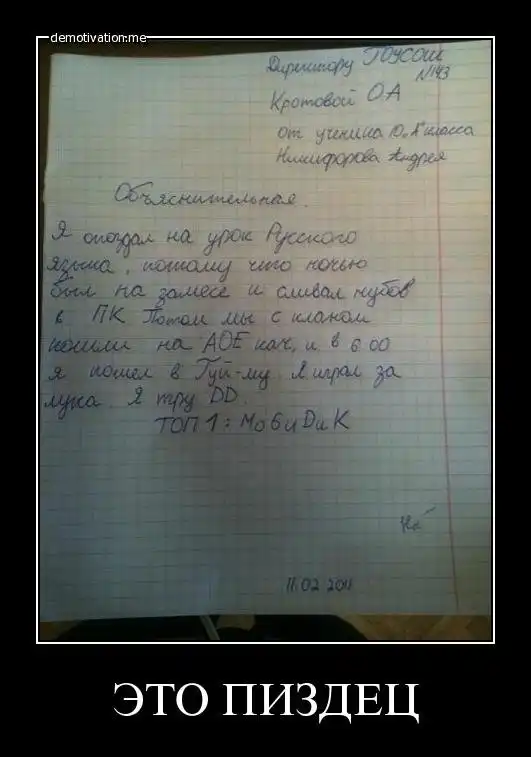 demotivation.me
Директору ГОУСОШ
№143
Кротовой О.А
от ученика 10 "А" класса
Никифорова Андрея
Объяснительная.
Я опоздал на урок Русского
языка, потому что ночью
был на замесе и сливал нубов
в ПК Потом мы с кланом
пошли на АОЕ кач, и в 6.00
я пошел в Гуй-му. Я играл за
лука. Я тру DD.
ТОП 1: МоБиДиК
11.02 2011
ЭТО ПИЗДЕЦ